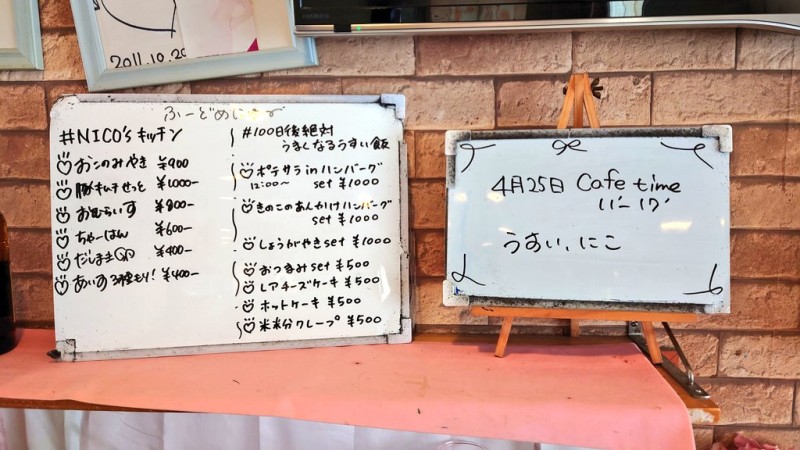 2011.10.20
ふーどめにゅー
#NICO'sキッチン
おこのみやき ¥900
豚キムチせっと ¥1000-
おむらいす ¥900-
ちゃーはん ¥600-
だしまき ¥400-
あいす3種もり! ¥400-
#100日後絶対
うまくなるうすい飯
ポテサラinハンバーグ
12:00〜 set ¥1000
きのこのあんかけハンバーグ
set ¥1000
しょうがやきset ¥1000
おつまみset ¥500
レアチーズケーキ ¥500
ホットケーキ ¥500
米粉クレープ ¥500
4月25日 Cafe time
11-17
うすい、にこ